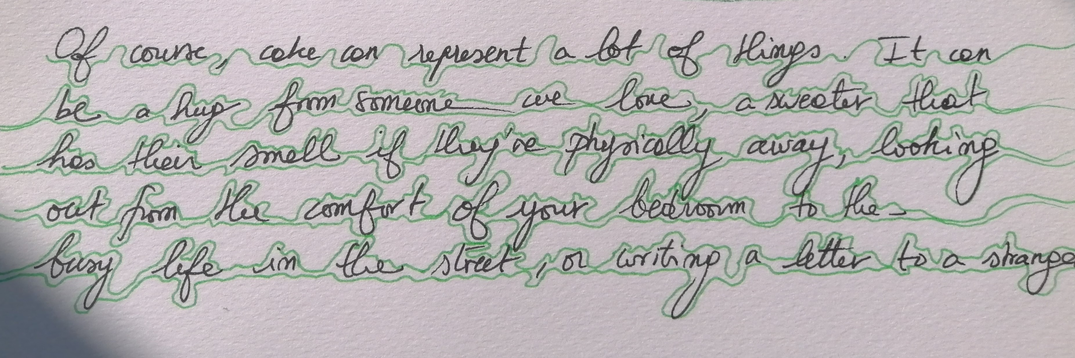 Of course, cake can represent a lot of things. It can
be a hug from someone we love, a sweater that
has their smell if they're physically away, looking
out from the comfort of your bedroom to the
busy life in the street, or writing a letter to a